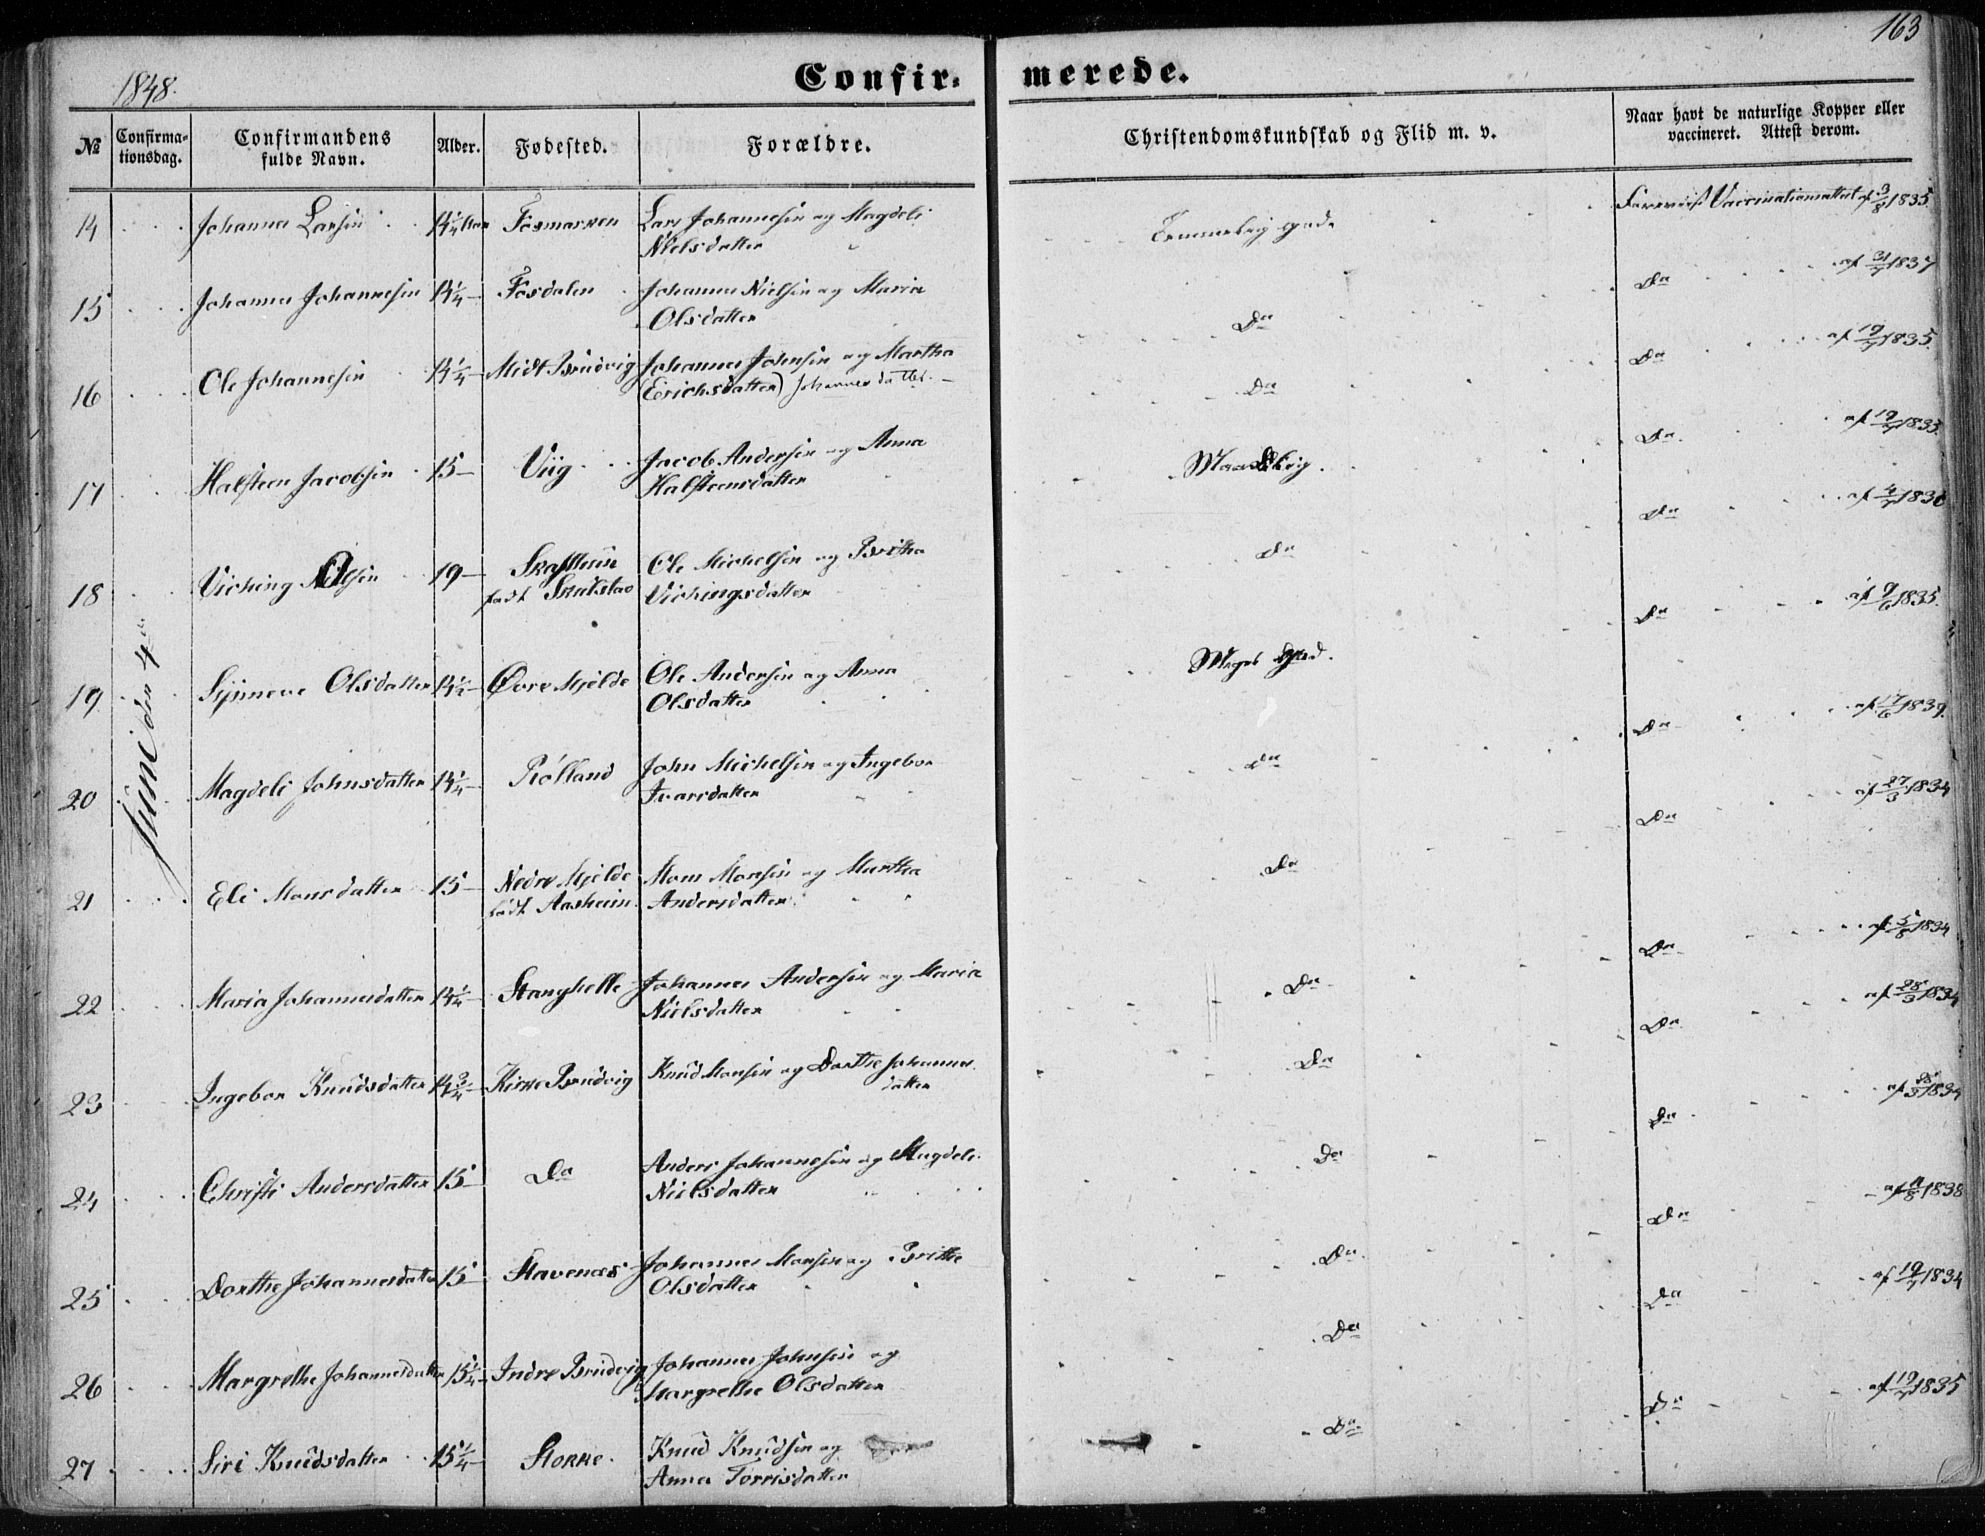 163
1848.
Confir- merede.
№ Confirma-tionsdag. Confirmandens fulde Navn. Alder. Fødested. Forældre. Christendomskundskab og Flid m. v. Naar havt de naturlige Kopper eller vaccineret. Attest derom.
Juni den 4de
14 Johannes Larsen 14 1/4 Fosmarken Lars Johannesen og Magdeli Nielsdatter Temmelig god. Vaccinationsattest af 3/8 1835
15 Johannes Johannesen 14 1/4 Fosdalen Johannes Nielsen og Maria Olsdatter Do Do af 31/7 1837
16 Ole Johannesen 14 1/4 Midt Brudvig Johannes Johnsen og Martha (Erichsdatter) Johannesdatter. Do Do af 19/7 1835.
17 Halsteen Jacobsen 15 Viig Jacob Andersen og Anna Halsteensdatter Maadelig. Do af 19/7 1833.
18 Viching Olsen 19 født Skulstad Ole Michelsen og Britha Vichingsdatter Do Do af 4/7 1830
19 Synneve Olsdatter 14 1/2 Øvre Mjelde Ole Andersen og Anna Olsdatter Meget God. Do af 9/6 1835.
20 Magdeli Johnsdatter 14 1/4 Rølland John Michelsen og Ingebor Ivarsdatter Do Do af 17/6 1839.
21 Eli Monsdatter 15 Nedre Mjelde født Aasheim Mons Monsen og Martha Andersdatter Do Do af 27/3 1834
22 Maria Johannesdatter 14 1/4 Stanghelle Johannes Andersen og Maria Nielsdatter Do Do af 5/8 1834
23 Ingebor Knudsdatter 14 3/4 Kirke Brudvig Knud Monsen og Dorthe Johannesdatter Do Do af 28/3 1834
24 Christi Andersdatter 15 Do Anders Johannesen og Magdeli Nielsdatter Do Do af 28/3 1834
25 Dorthe Johannesdatter 15 Stavenes Johannes Monsen og Brithe Olsdatter Do Do af 11/8 1838
26 Margrethe Johannesdatter 15 1/4 Indre Brudvig Johannes Johnsen og Margrethe Olsdatter Do Do af 19/7 1834
27 Siri Knudsdatter 15 1/4 Storke Knud Knudsen og Anna Torrisdatter Do Do af 19/7 1835